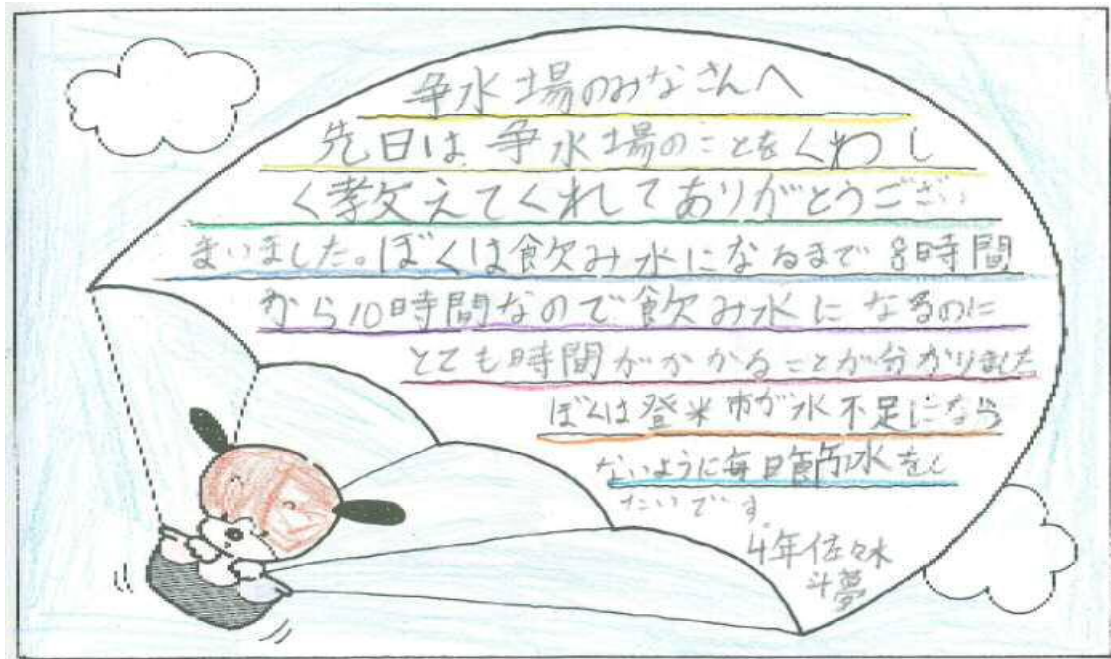 争水場のみなさんへ
先日は争水場のことをくわし
く教えてくれてありがとうござい
まいました。ぼくは飲み水になるまで8時間
から10時間なので飲み水になるのに
とても時間がかかることが分かりました
ぼくは登米市が水不足になら
ないように毎日節水をし
たいです。
4年佐々木
斗夢